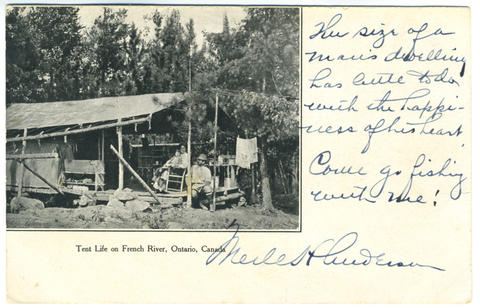 The size of a
man's dwelling
has little to do
with the happi-
ness of his heart
Come go fishing
with me!
Tent Life on French River, Ontario, Canada
Merle H Anderson